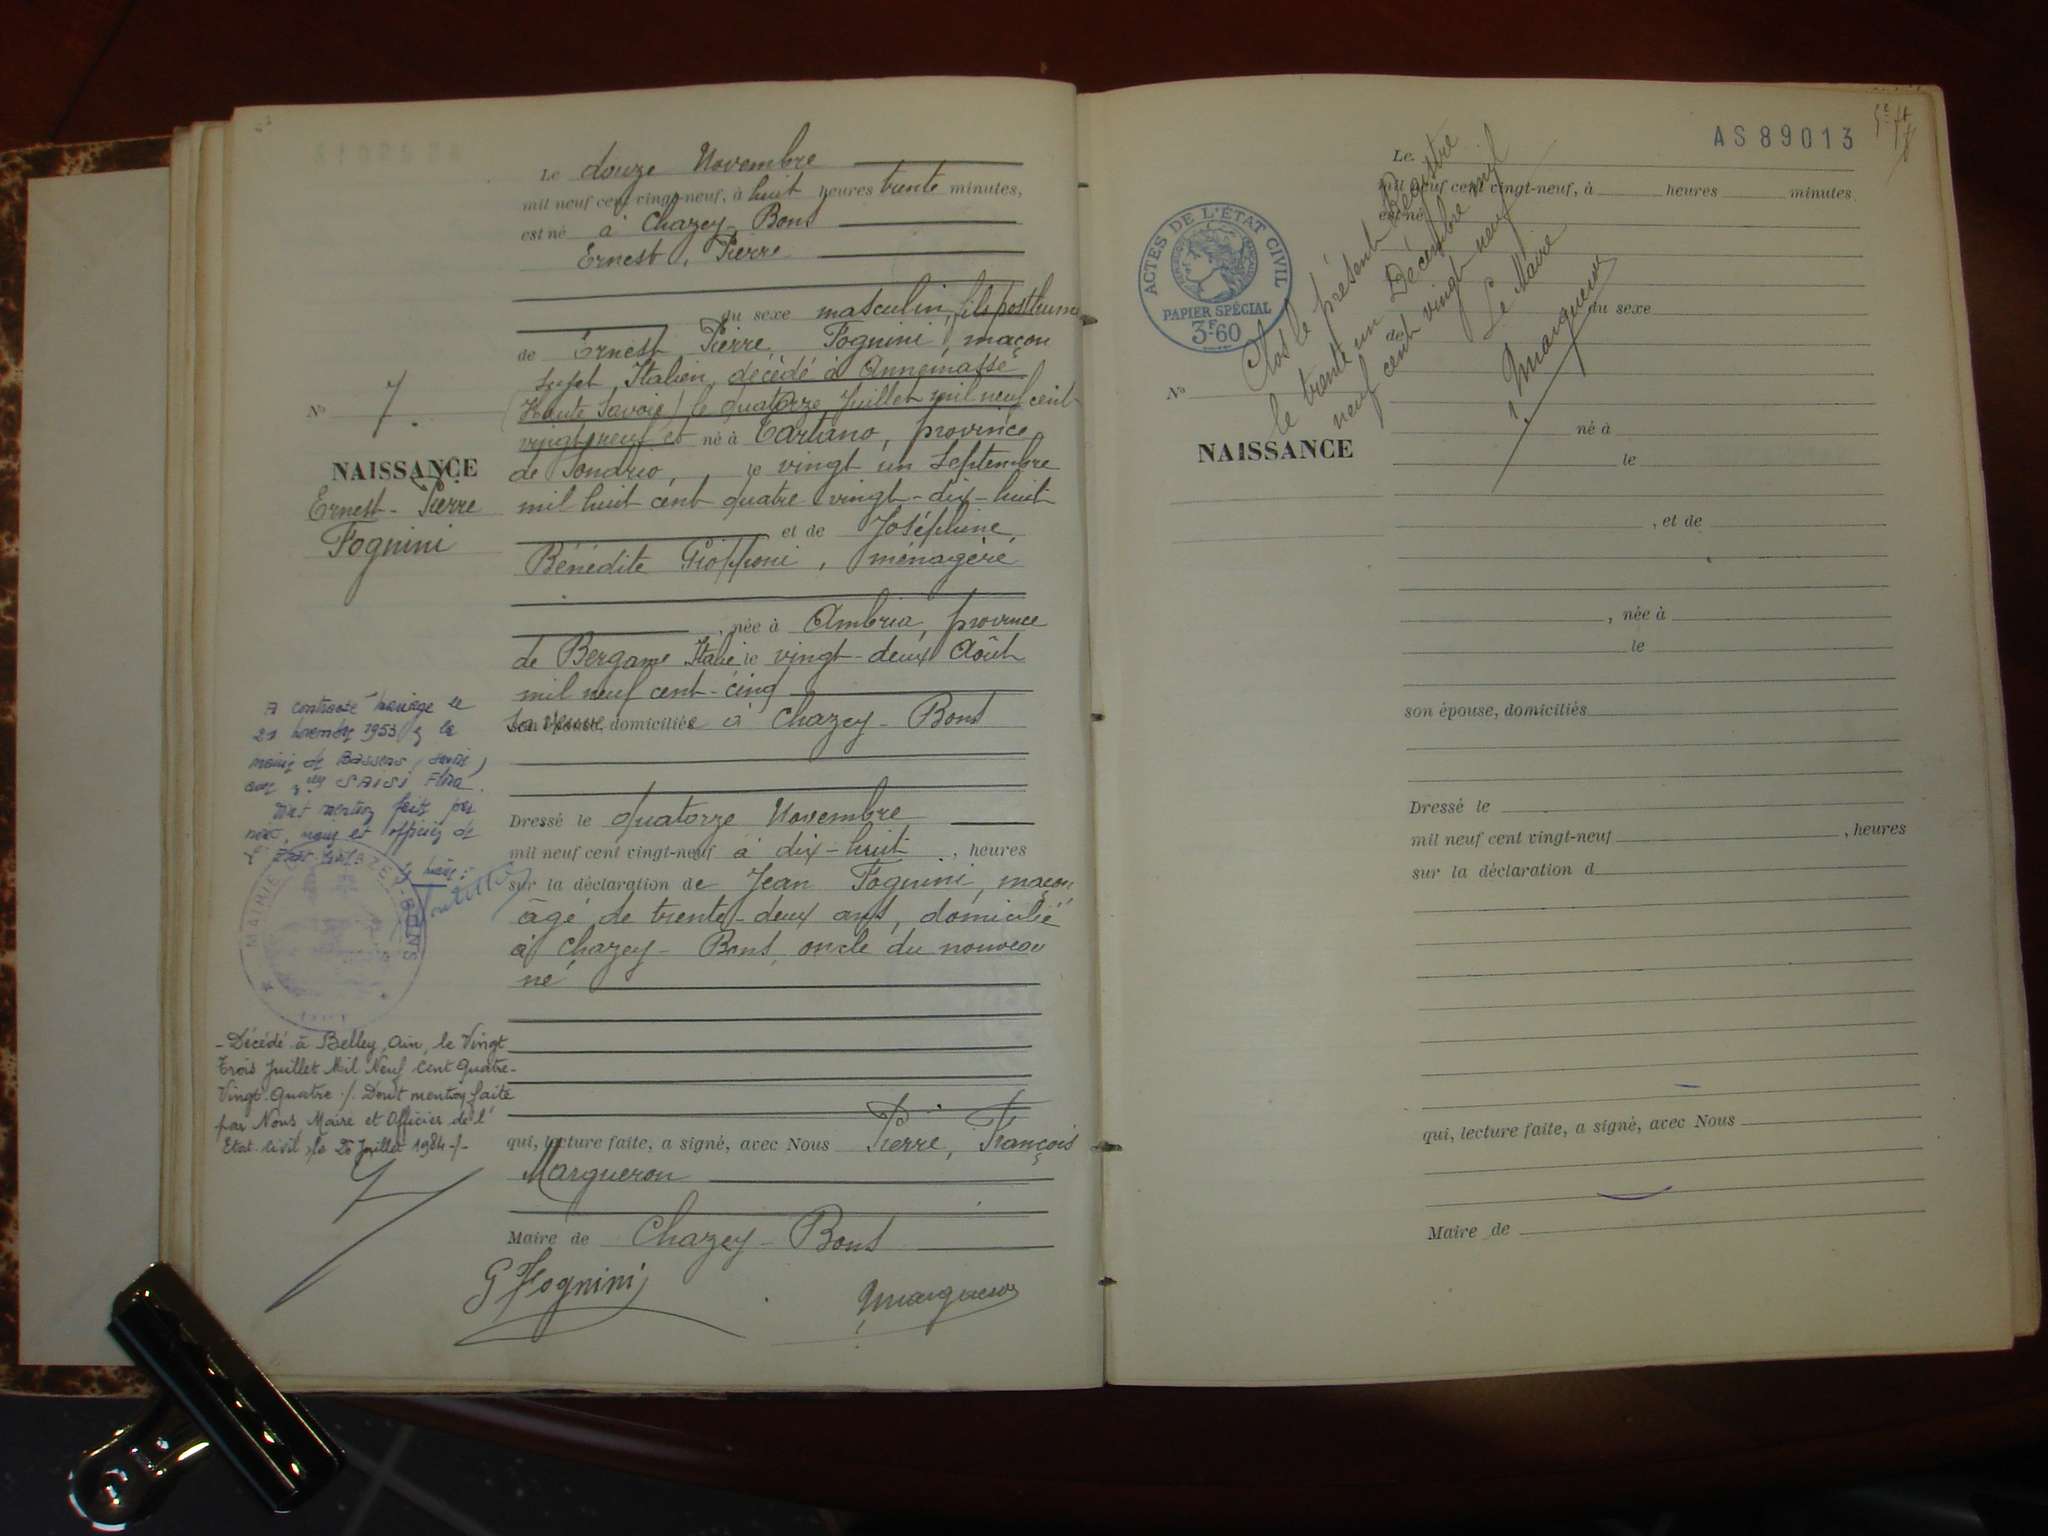 Le douze Novembre
mil neuf cent vingt-neuf, à huit heures trente minutes,
est né à Chazey-Bons
Ernest, Pierre
du sexe masculin, fils posthume
de Ernest Pierre Fognini, maçon
sujet Italien, décédé à Annemasse
(Haute Savoie) le quatorze Juillet mil neuf cent
vingt neuf et né à Tartano, province
de Sondrio, le vingt un Septembre
mil huit cent quatre vingt-dix-huit
et de Joséphine,
Bénédite Gioffroni, ménagère
, née à Ambria, province
de Bergame Italie le vingt-deux Août
mil neuf cent-cinq
sa veuve, domiciliée à Chazey-Bons
Dressé le quatorze Novembre
mil neuf cent vingt-neuf à dix-huit, heures
sur la déclaration de Jean Fognini, maçon,
âgé de trente-deux ans, domicilié
à Chazey-Bons, oncle du nouveau
né
qui, lecture faite, a signé, avec Nous Pierre, François
Margueron
Maire de Chazey-Bons
G Fognini
Margueron
No 7.
NAISSANCE
Ernest-Pierre
Fognini
A contracté mariage le
21 novembre 1953 à la
mairie de Bassens (Savoie)
avec SAISI Flora.
Dont mention faite par
nous, maire et officier de
l'état civil
le maire:
MAIRIE CHAZEY-BONS
- Décédé à Belley, Ain, le Vingt
Trois Juillet Mil Neuf Cent Quatre-
Vingt Quatre ./. Dont mention faite
par Nous, Maire et Officier de l'
Etat-Civil, le 25 Juillet 1984 -/-
AS 89013
Le
mil neuf cent vingt-neuf, à heures minutes
est né
du sexe
de
né à
le
, et de
, née à
le
son épouse, domiciliés
Dressé le
mil neuf cent vingt-neuf , heures
sur la déclaration d
qui, lecture faite, a signé, avec Nous
Maire de
ACTES DE L'ÉTAT CIVIL
PAPIER SPÉCIAL
3F60
No
NAISSANCE
Clos le présent Registre
le trente un Décembre mil
neuf cent vingt-neuf
Le Maire
Margueron